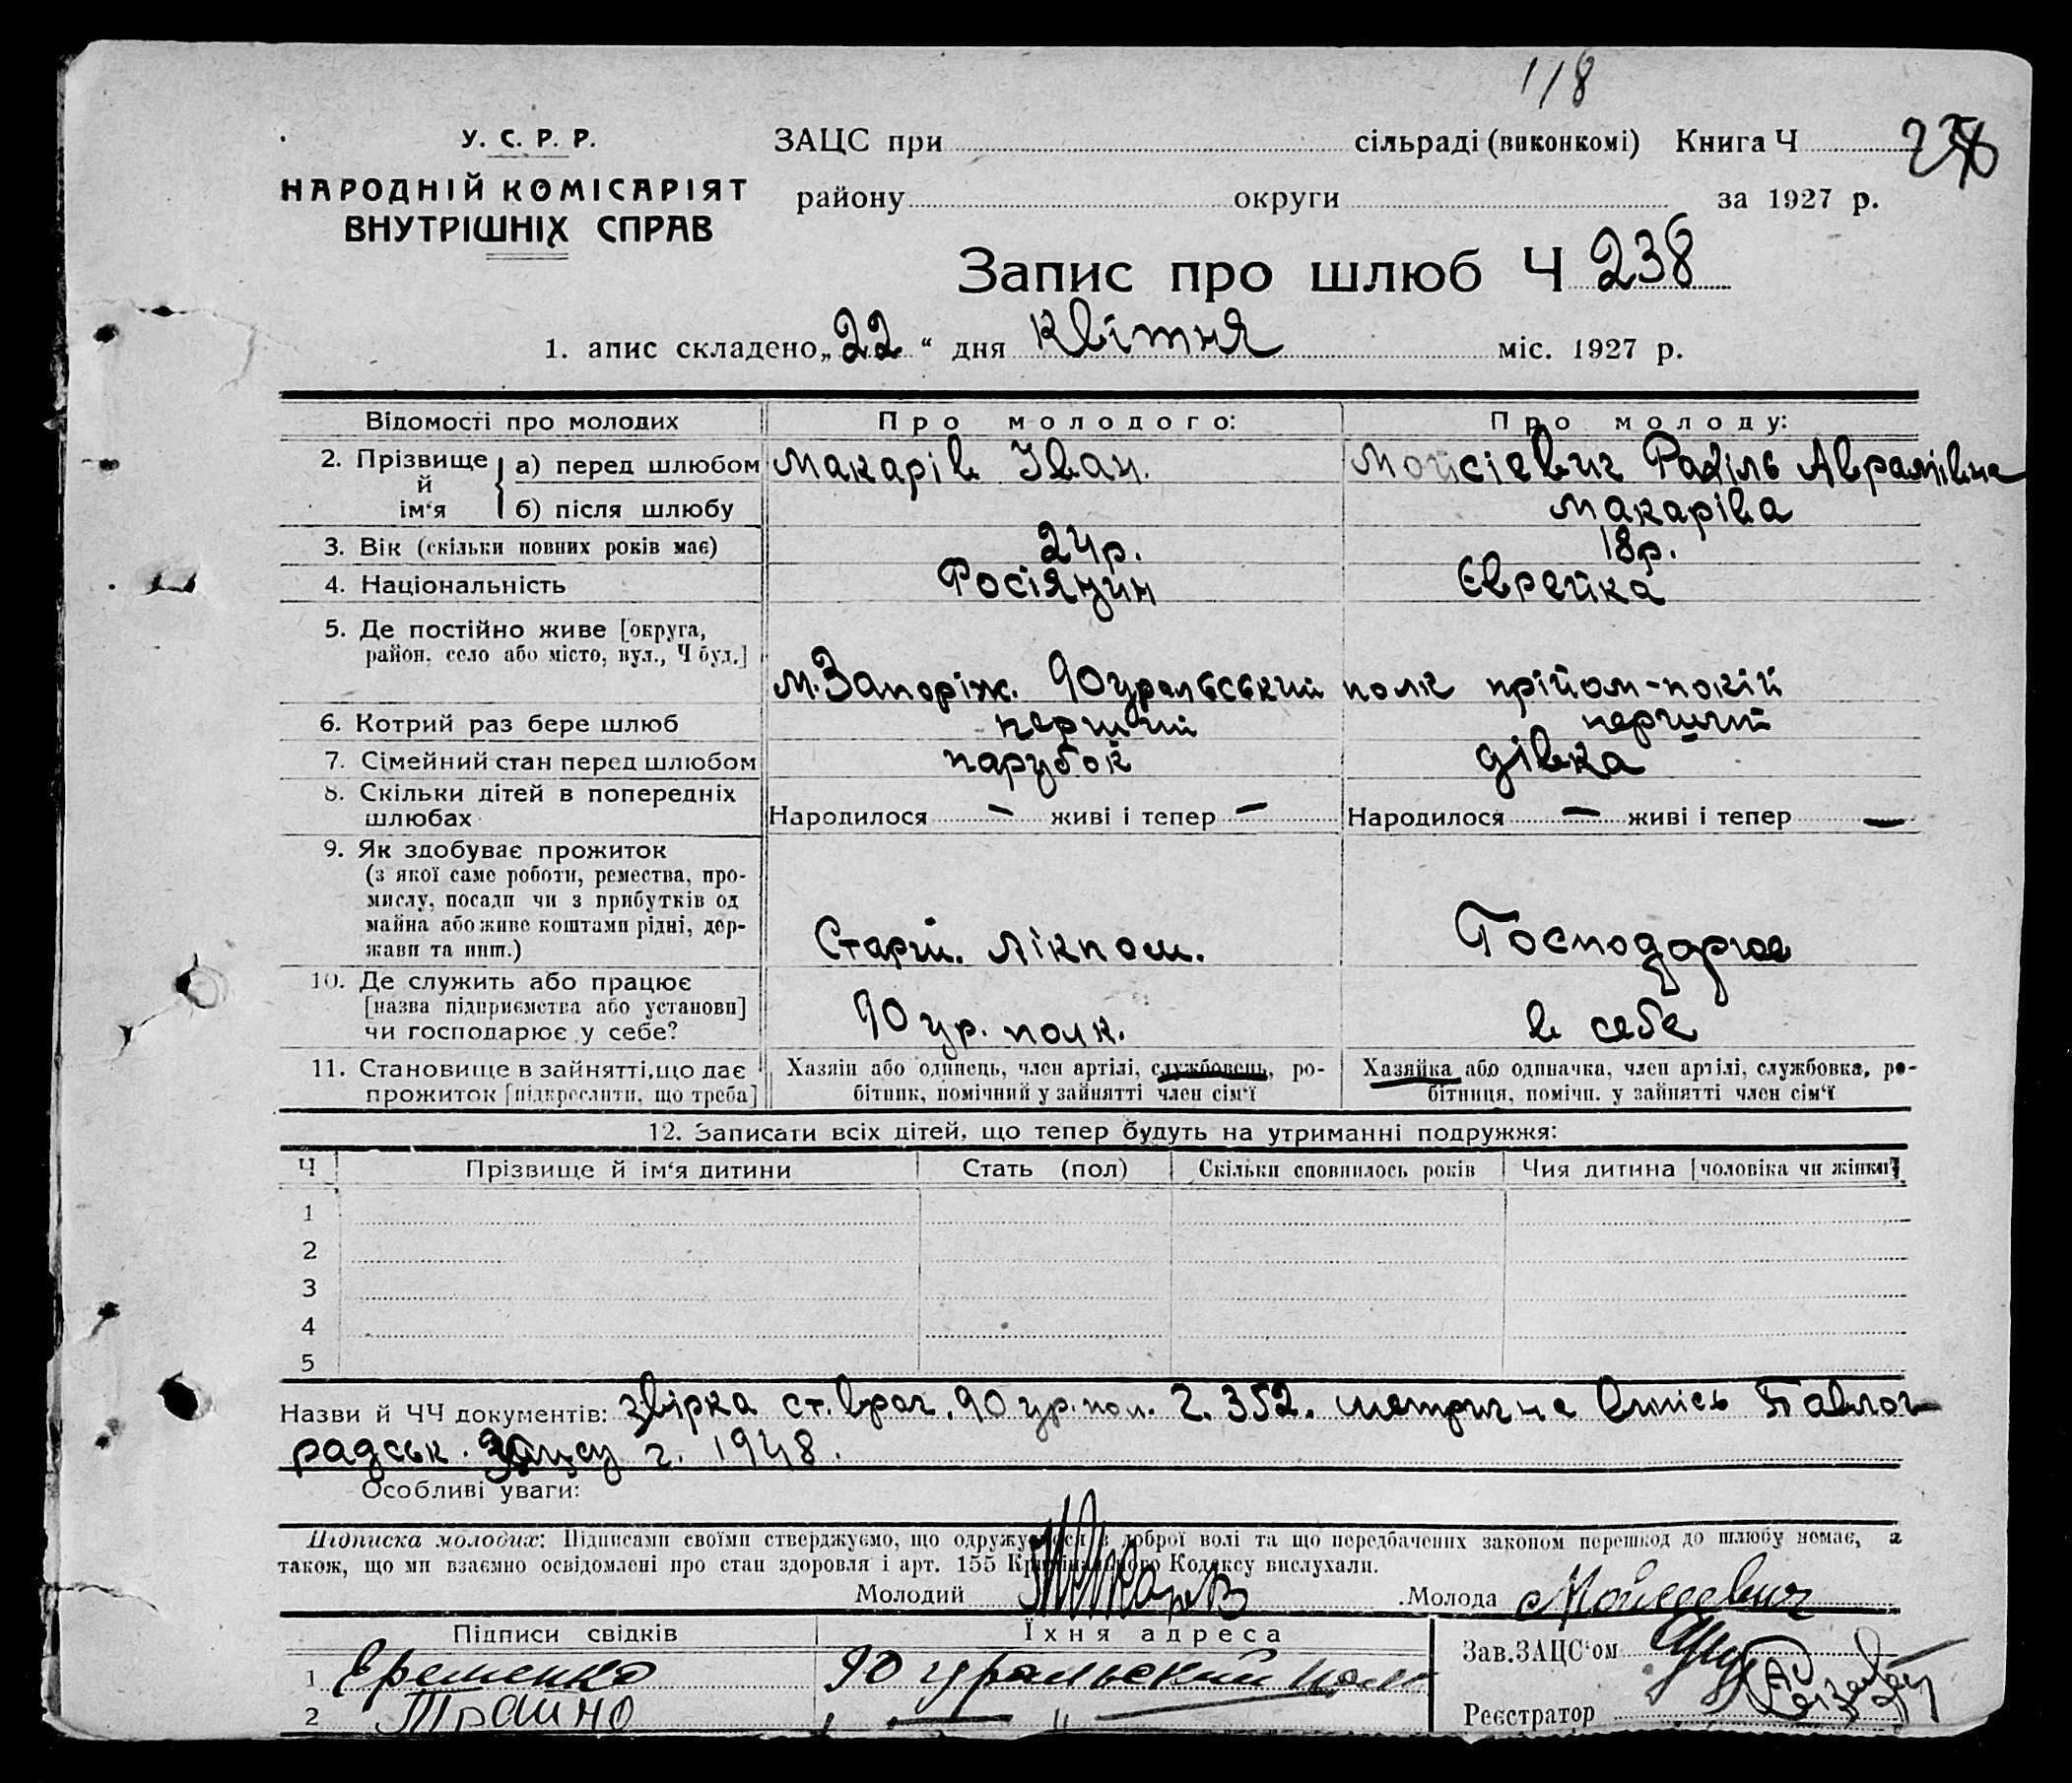 118
У. С. Р. Р.
НАРОДНІЙ КОМІСАРІЯТ
ВНУТРІШНІХ СПРАВ
ЗАЦС при сільраді (виконкомі) Книга Ч
району округи за 1927 р.
Запис про шлюб Ч 238
1. апис складено „22“ дня Квітня міс. 1927 р.
Відомості про молодих Про молодого: Про молоду:
2. Прізвище й ім‘я а) перед шлюбом Макарів Іван. Мойсієвич Рахіль Аврамівна
б) після шлюбу Макаріва
3. Вік (скільки повних років має) 24р. 18р.
4. Національність Росіянин Єврейка
5. Де постійно живе [округа,
район, село або місто, вул., Ч буд.]
м. Запоріж. 90 уральський полк прійом-покій
6. Котрий раз бере шлюб перший перший
7. Сімейний стан перед шлюбом парубок дівка
8. Скільки дітей в попередніх
шлюбах Народилося — живі і тепер — Народилося — живі і тепер —
9. Як здобуває прожиток
(з якої саме роботи, ремества, про-
мислу, посади чи з прибутків од
майна або живе коштами рідні, дер-
жави та инш.) Старш. лікпом. Господарює
10. Де служить або працює
[назва підприємства або установи]
чи господарює у себе? 90 ур. полк. в себе
11. Становище в зайнятті, що дає
прожиток [підкреслити, що треба]
Хазяїн або одинець, член артілі, службовець, ро-
бітник, помічний у зайнятті член сім‘ї
Хазяйка або одиначка, член артілі, службовка, ро-
бітниця, помічн. у зайнятті член сім‘ї
12. Записати всіх дітей, що тепер будуть на утриманні подружжя:
Ч Прізвище й ім‘я дитини Стать (пол) Скільки сповнилось років Чия дитина [чоловіка чи жінки]
1
2
3
4
5
Назви й ЧЧ документів: ст. врач. 90 ур. пол. 2. 352. метрична випісь Павлог
радськ. Зацсу г. 1948.
Особливі уваги:
Підписка молодих: Підписами своїми стверджуємо, що одружуємося з доброї волі та що передбачених законом перешкод до шлюбу немає, а
також, що ми взаємно освідомлені про стан здоровля і арт. 155 Кримінального Кодексу вислухали.
Молодий Макарів Молода Мойсеевич
Підписи свідків Їхня адреса
Зав. ЗАЦС‘ом
1 Еременко 90 уральский полк
2 — " —
Реєстратор